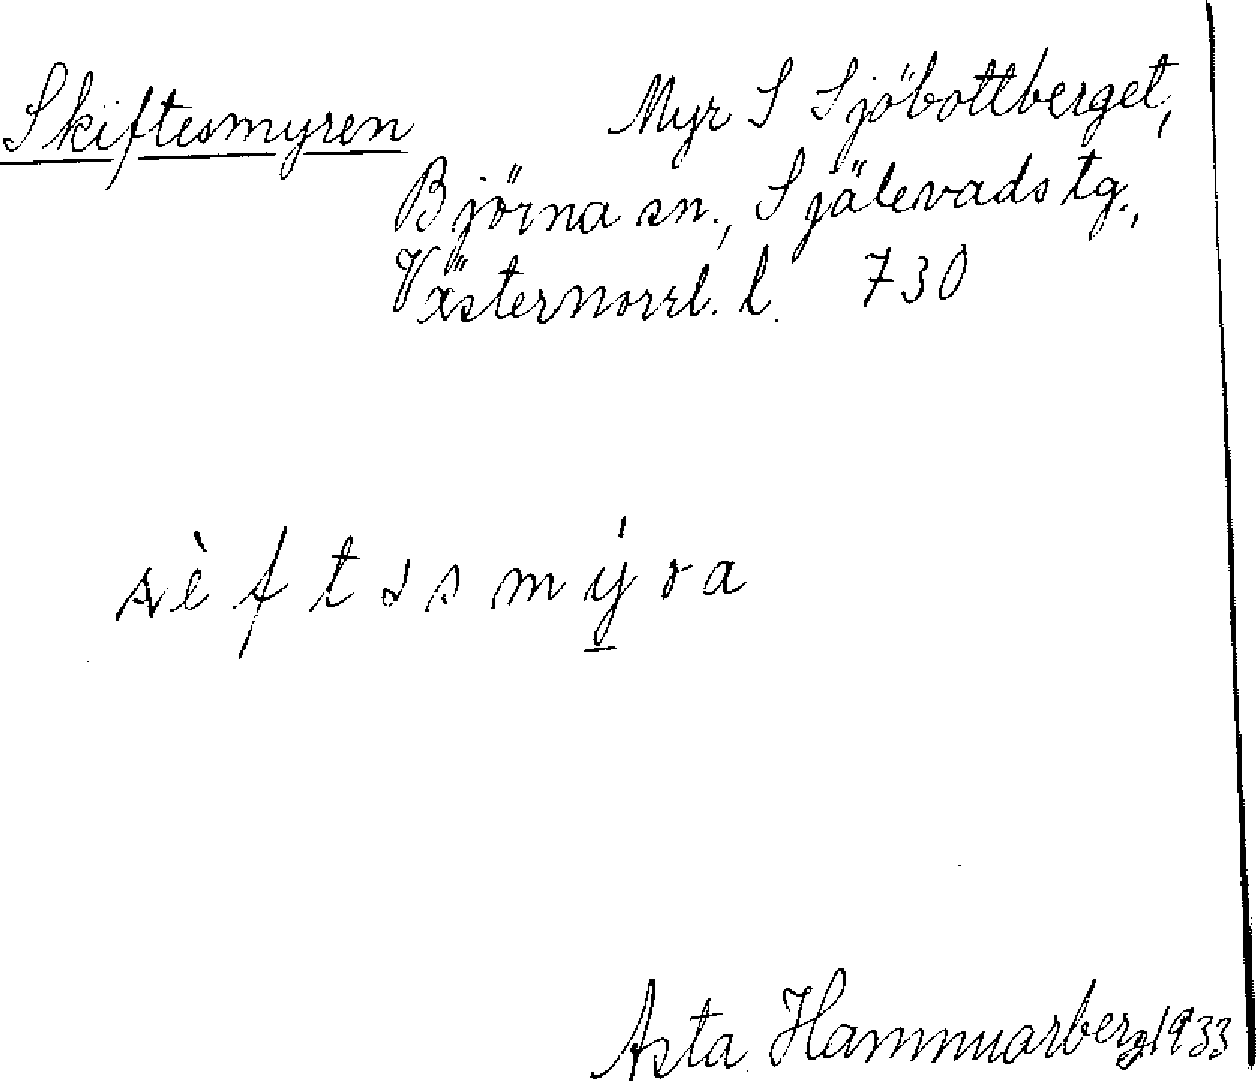 Skiftesmyren Myr S Sjöbottberget,
Björna sn., Själevads tg.,
Västernorrl. l. 730
Asta Hammarberg 1933